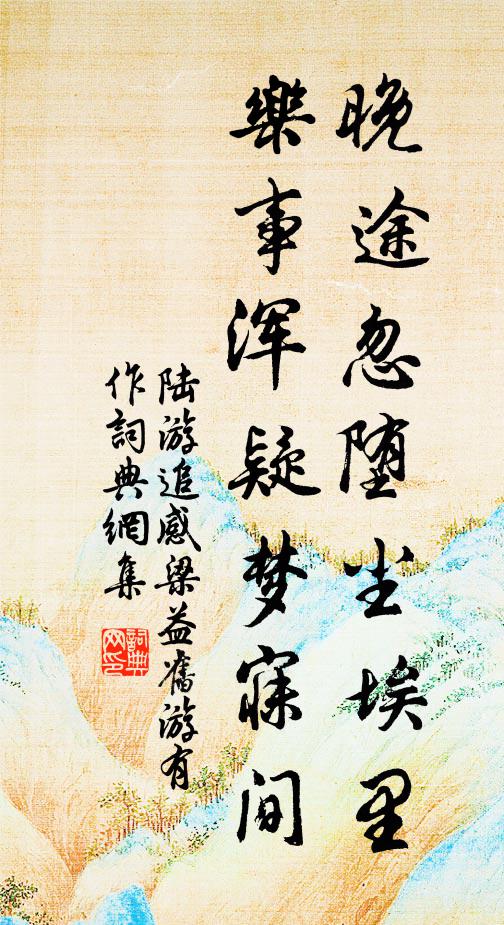 晚途忽堕尘埃里
樂事浑疑梦寐间
陆游追感梁益舊游有
作詞典網集
詞典
网印